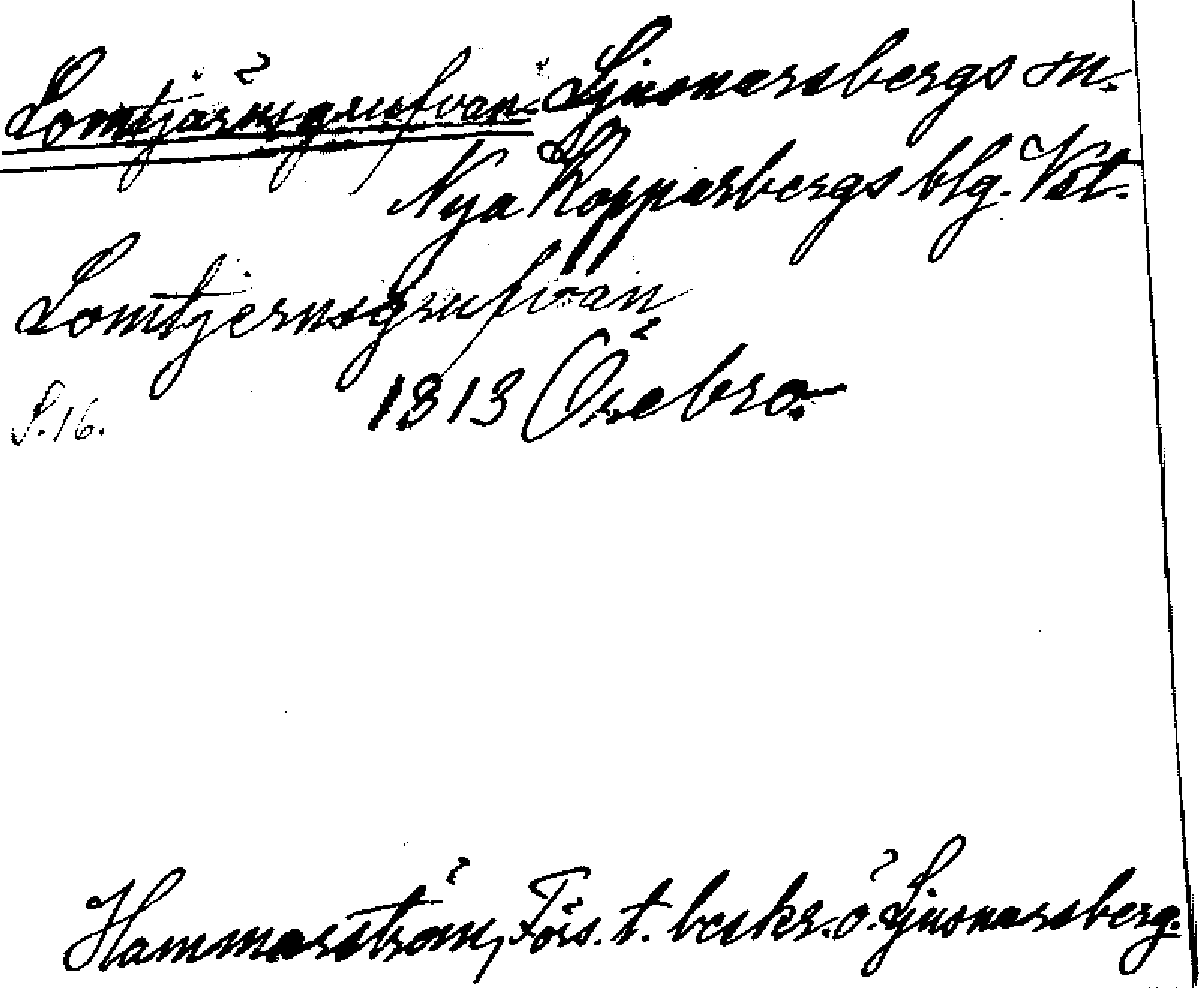 Lomtjärnsgrufvan. Ljusnarsbergs sn.
Nya Kopparbergs blg. Vst.
Lomtjernsgrufvan
S. 16. 1813 Örebro.
Hammarström, Förs. t. beskr. ö. Ljusnarsberg.